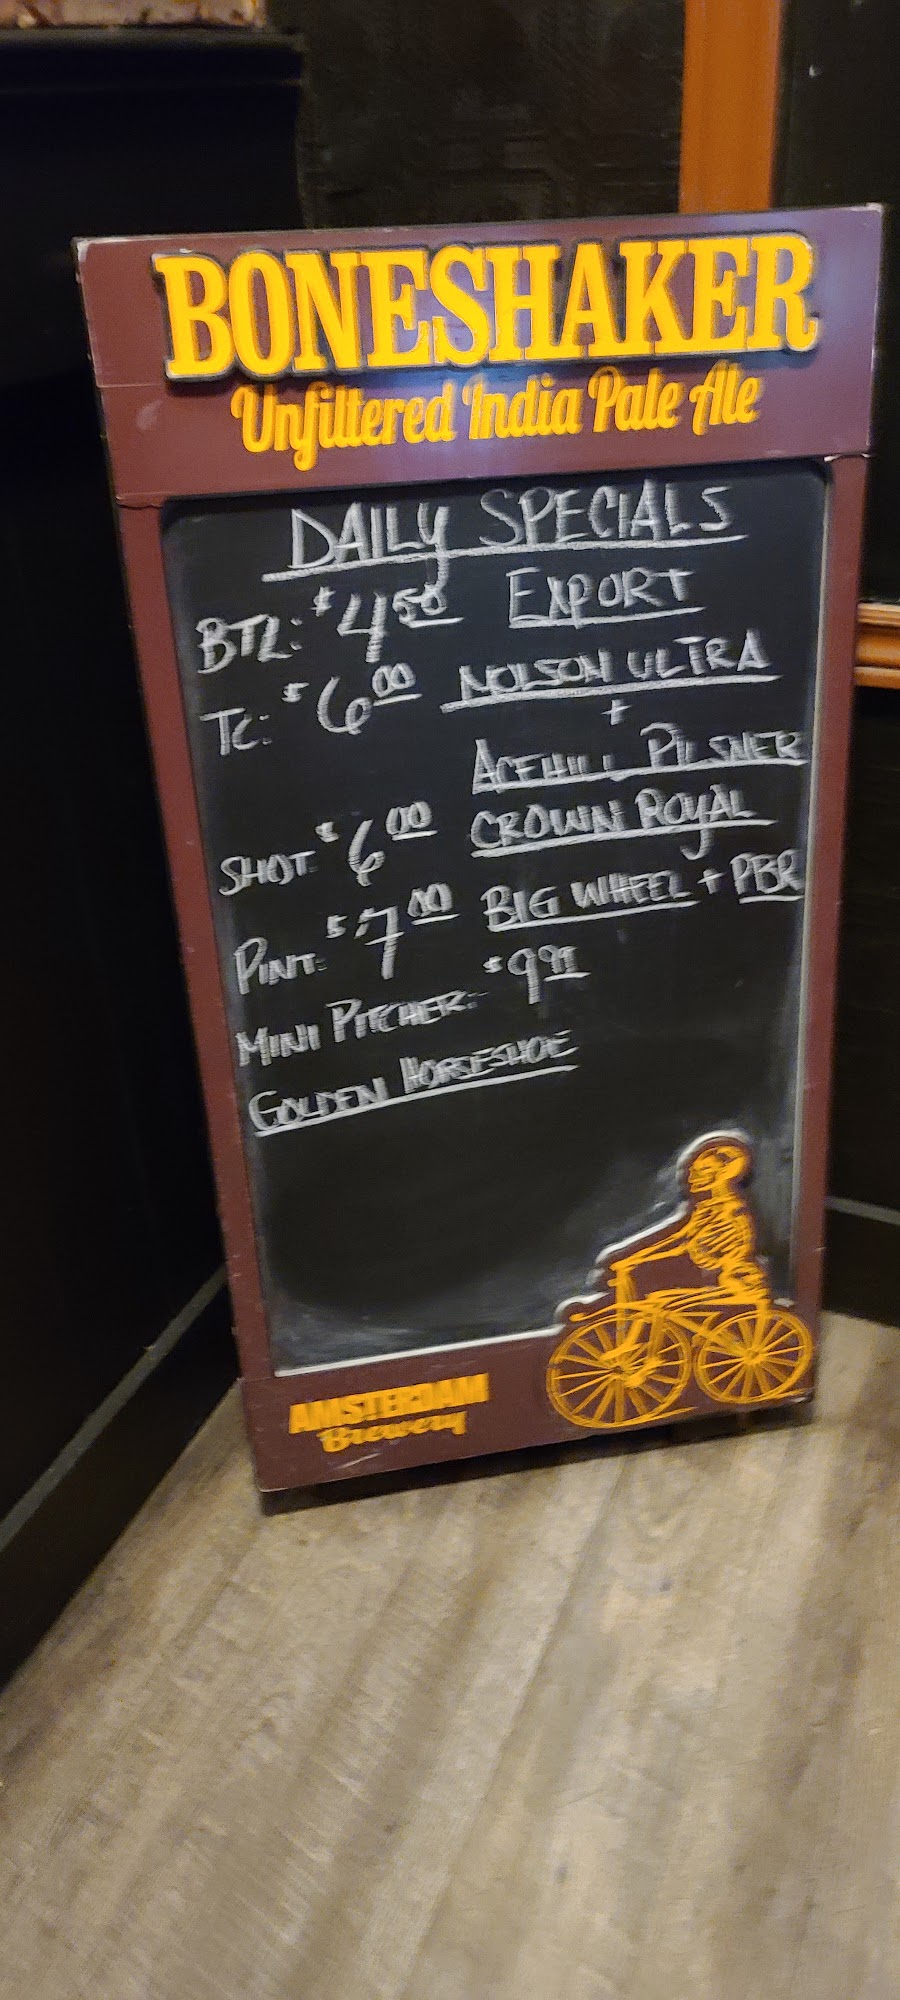 BONESHAKER
Unfiltered India Pale Ale
DAILY SPECIALS
BTL: $4.50 EXPORT
TC: $6.00 MOLSON ULTRA
+
ACEHILL PILSNER
SHOT: $6.00 CROWN ROYAL
PINT: $7.00 BIG WHEEL + PBR
MINI PITCHER: $9.99
GOLDEN HORSESHOE
AMSTERDAM
Brewery